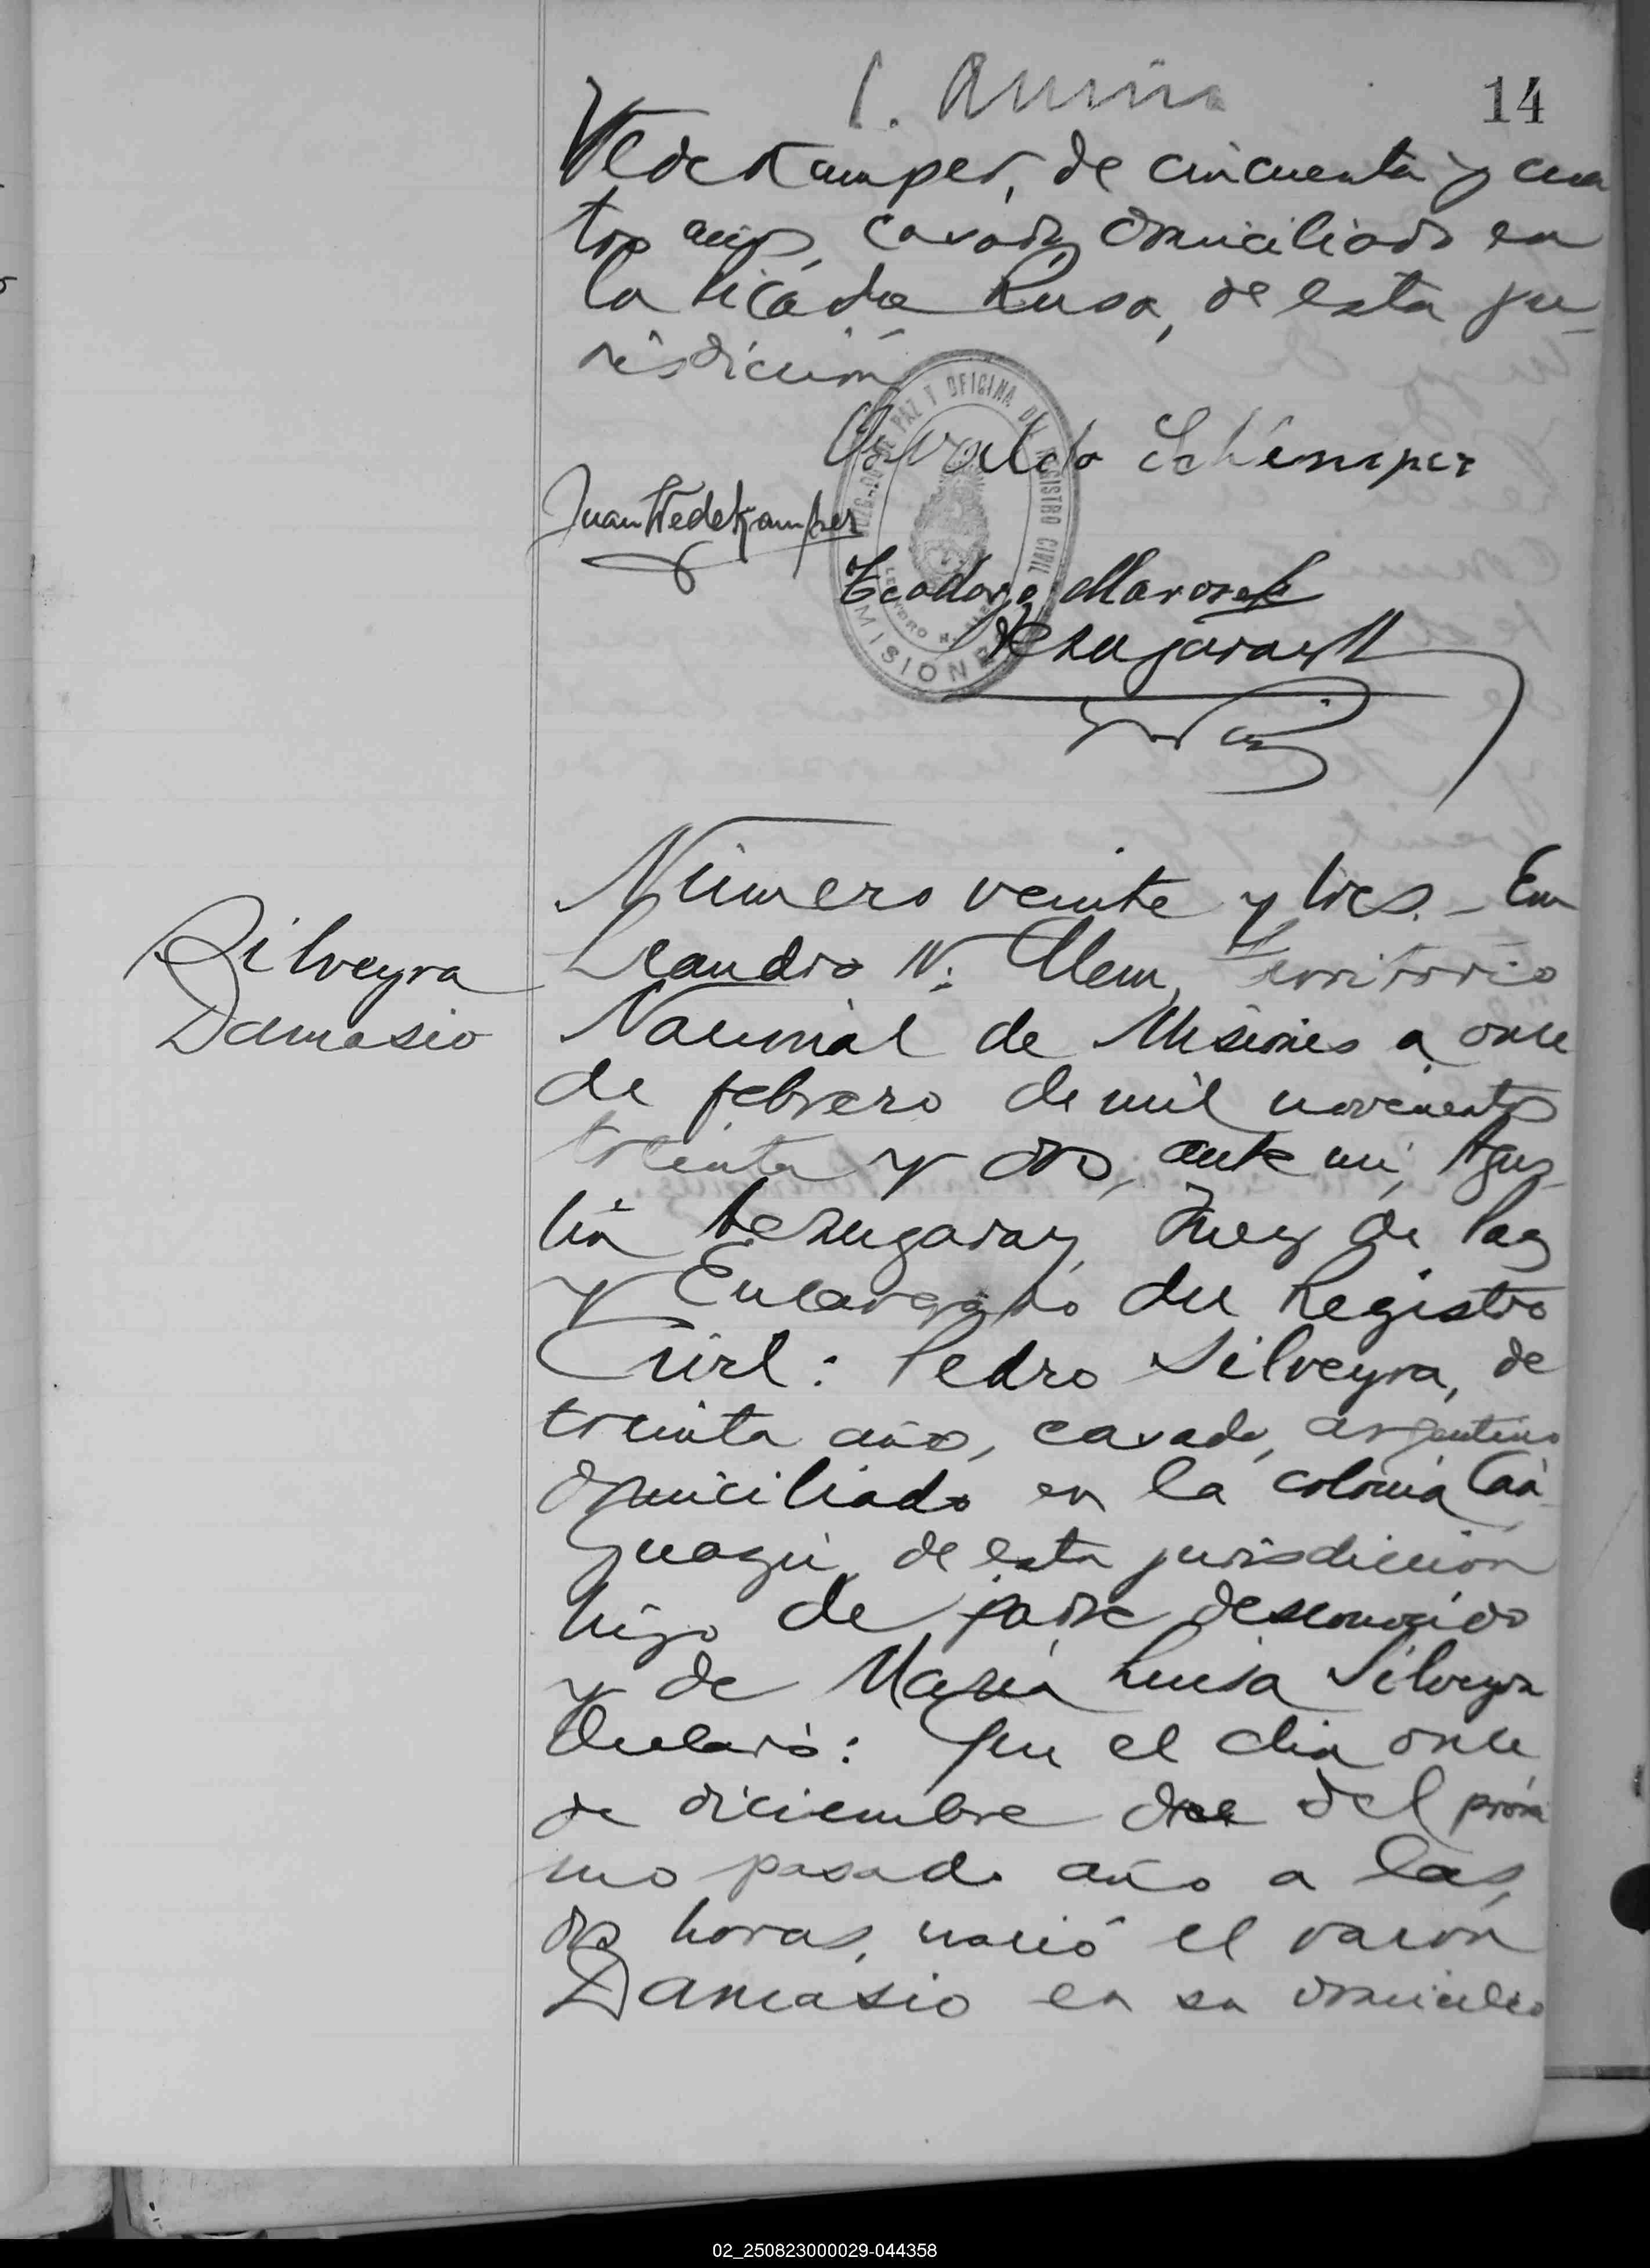 14
Wedekamper, de cincuenta y cua
tro años, casado, domiciliado en
la Picada Rusa, de esta ju-
risdicción
JUZGADO DE PAZ Y OFICINA DE REGISTRO CIVIL
LEANDRO N. ALEM
MISIONES
Osvaldo Schemper
Juan Wedekamper
Teodoro Marosek
Número veinte y tres. - En
Leandro N. Alem, Territorio
Nacional de Misiones a once
de febrero de mil novecientos
treinta y dos, ante mi, Agus-
tín Berrugaray, Juez de Paz
y Encargado del Registro
Civil: Pedro Silveyra, de
treinta años, casado, argentino
domiciliado en la colonia Caá-
Guazú, de esta jurisdicción
hijo de padre desconocido
y de María Luisa Silveyra
declaró: Que el día once
de diciembre del próxi
mo pasado año a las
dos horas, nació el varón
Damasio en su domicilio
Silveyra
Damasio
02_250823000029-044358